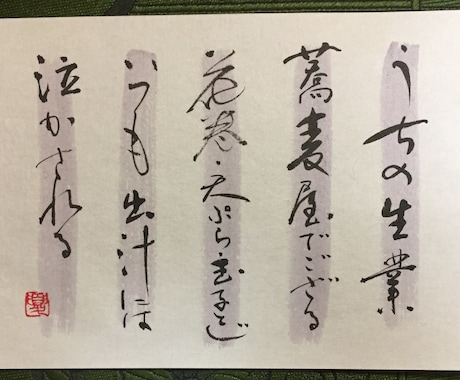 うちの生業
蕎麦屋でござる
花巻・天ぷら玉子とじ
いつも出汁には
泣かされる